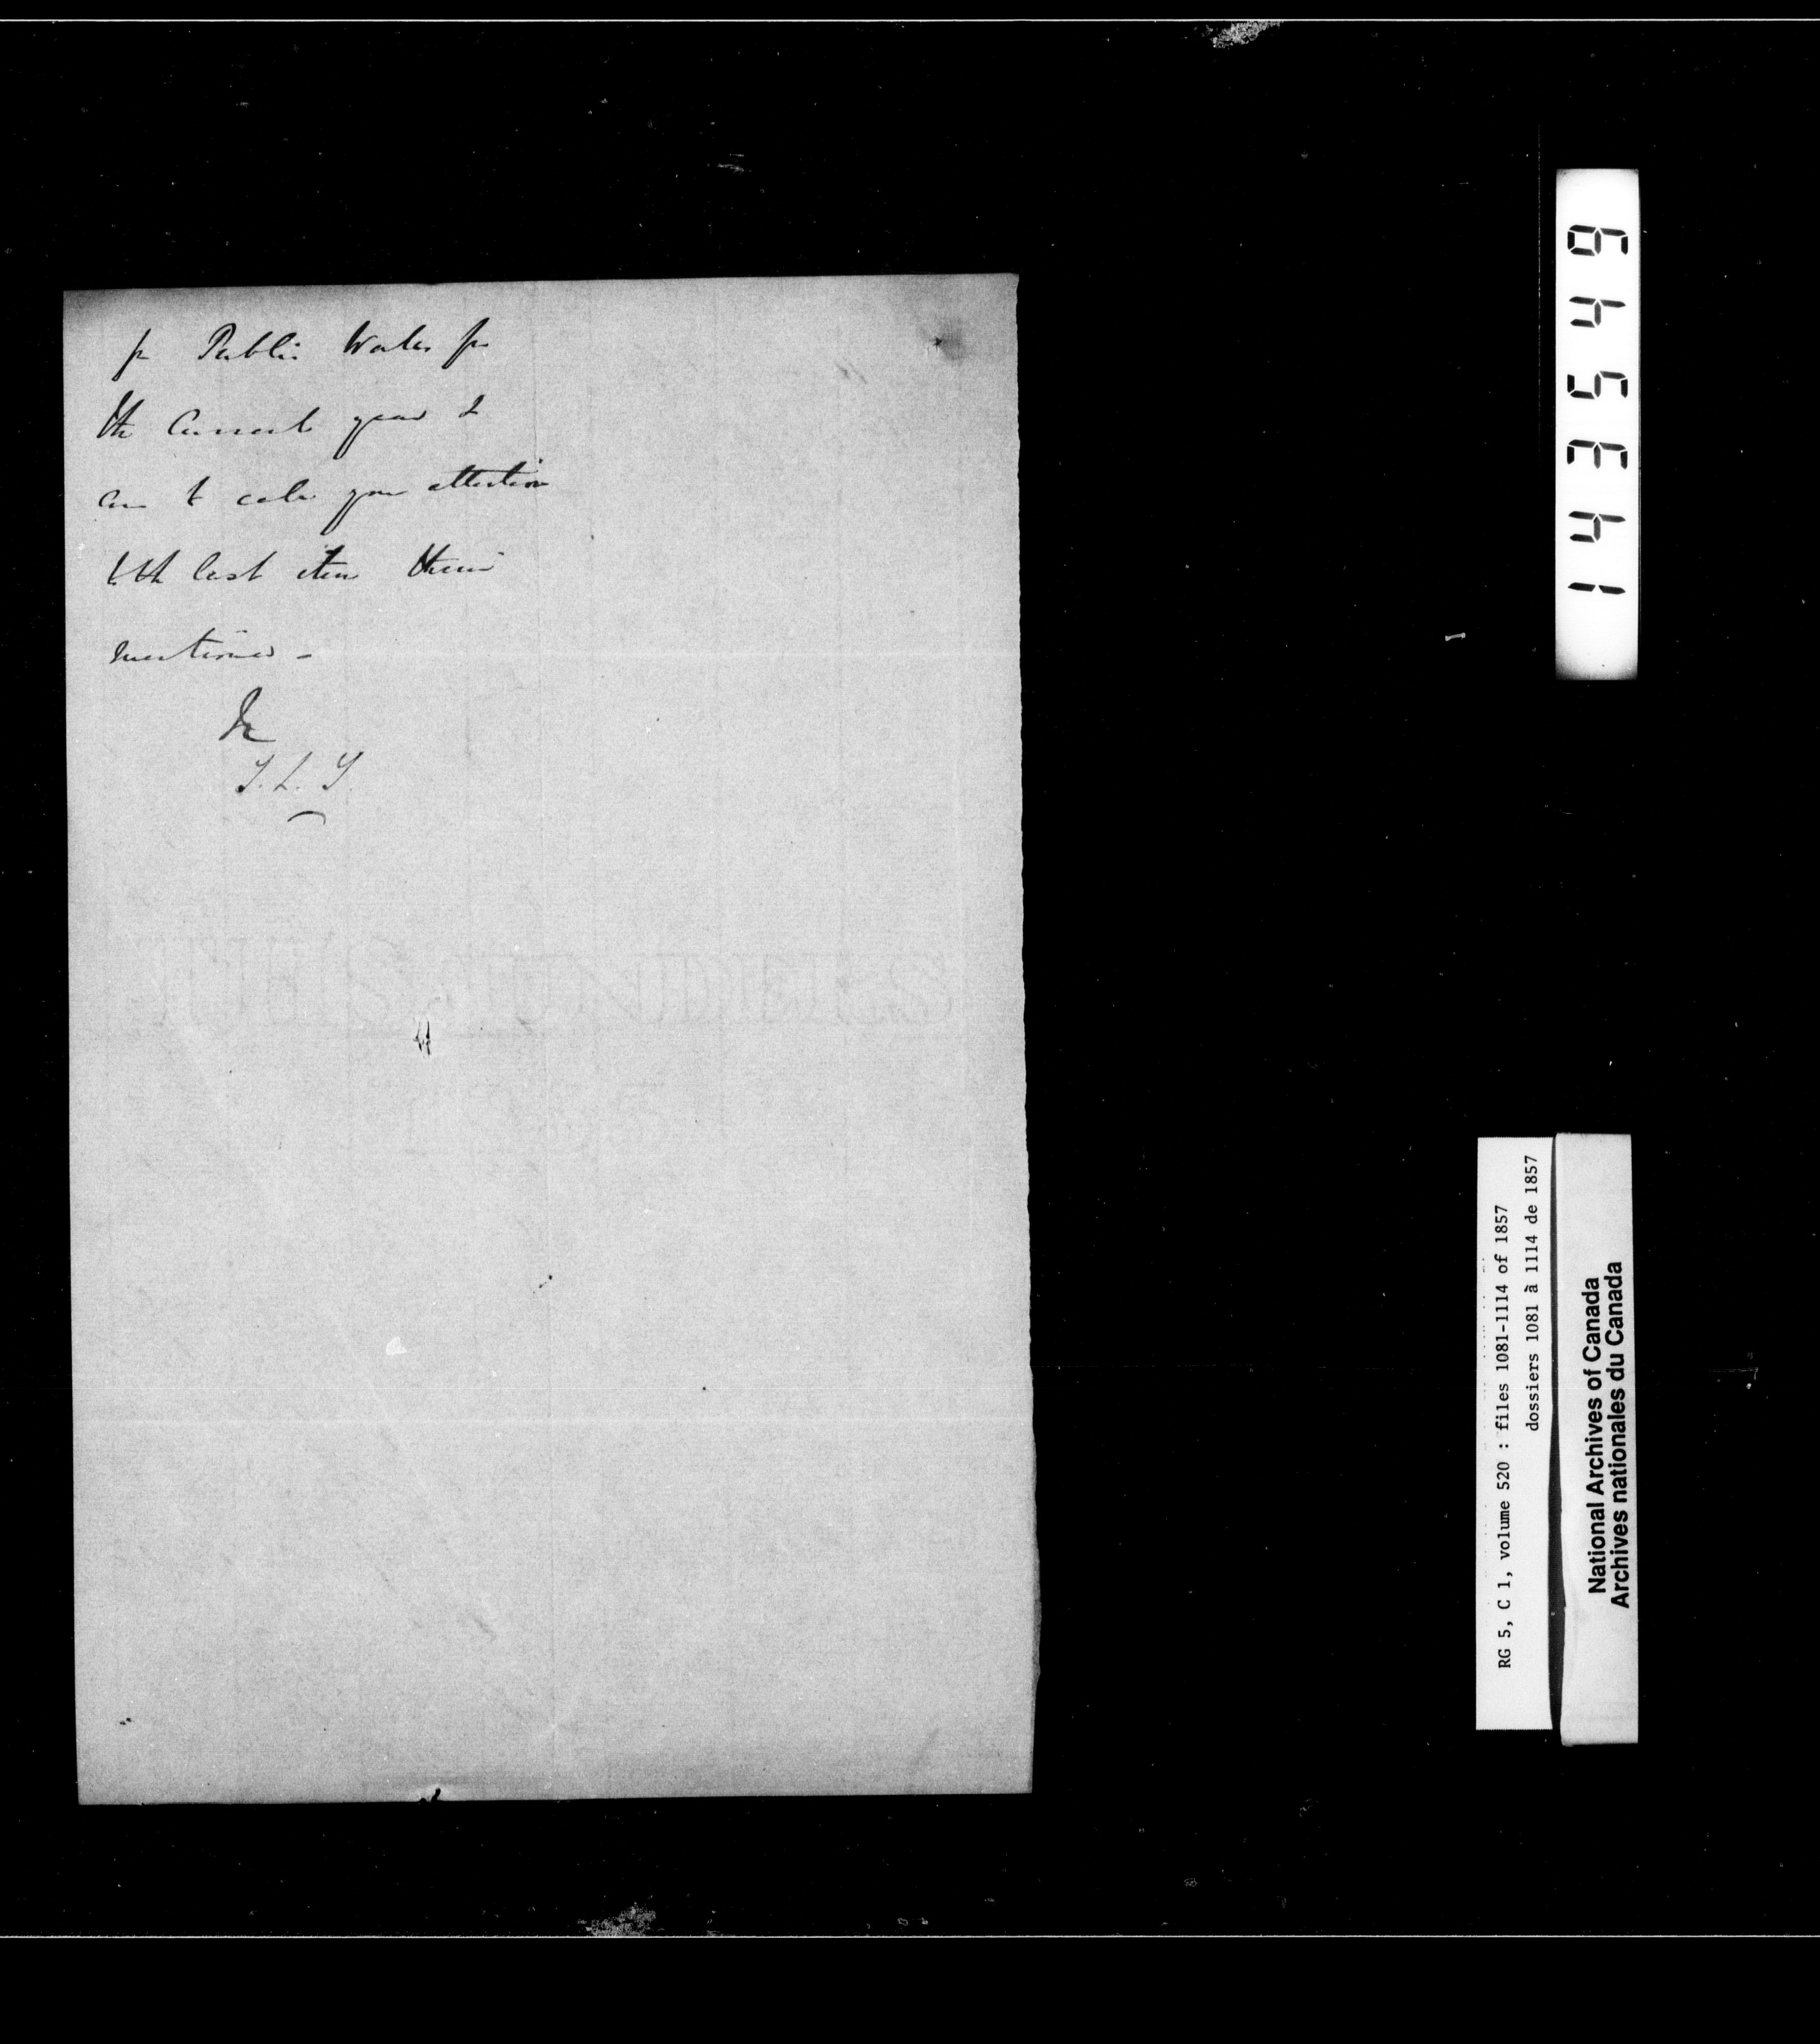 for Public Works for
the Current year &
am to call your attention
to the last item therein
mentioned -
T. L. T.
143549
RG 5, C 1, volume 520 : files 1081-1114 of 1857
dossiers 1081 à 1114 de 1857
National Archives of Canada
Archives nationales du Canada